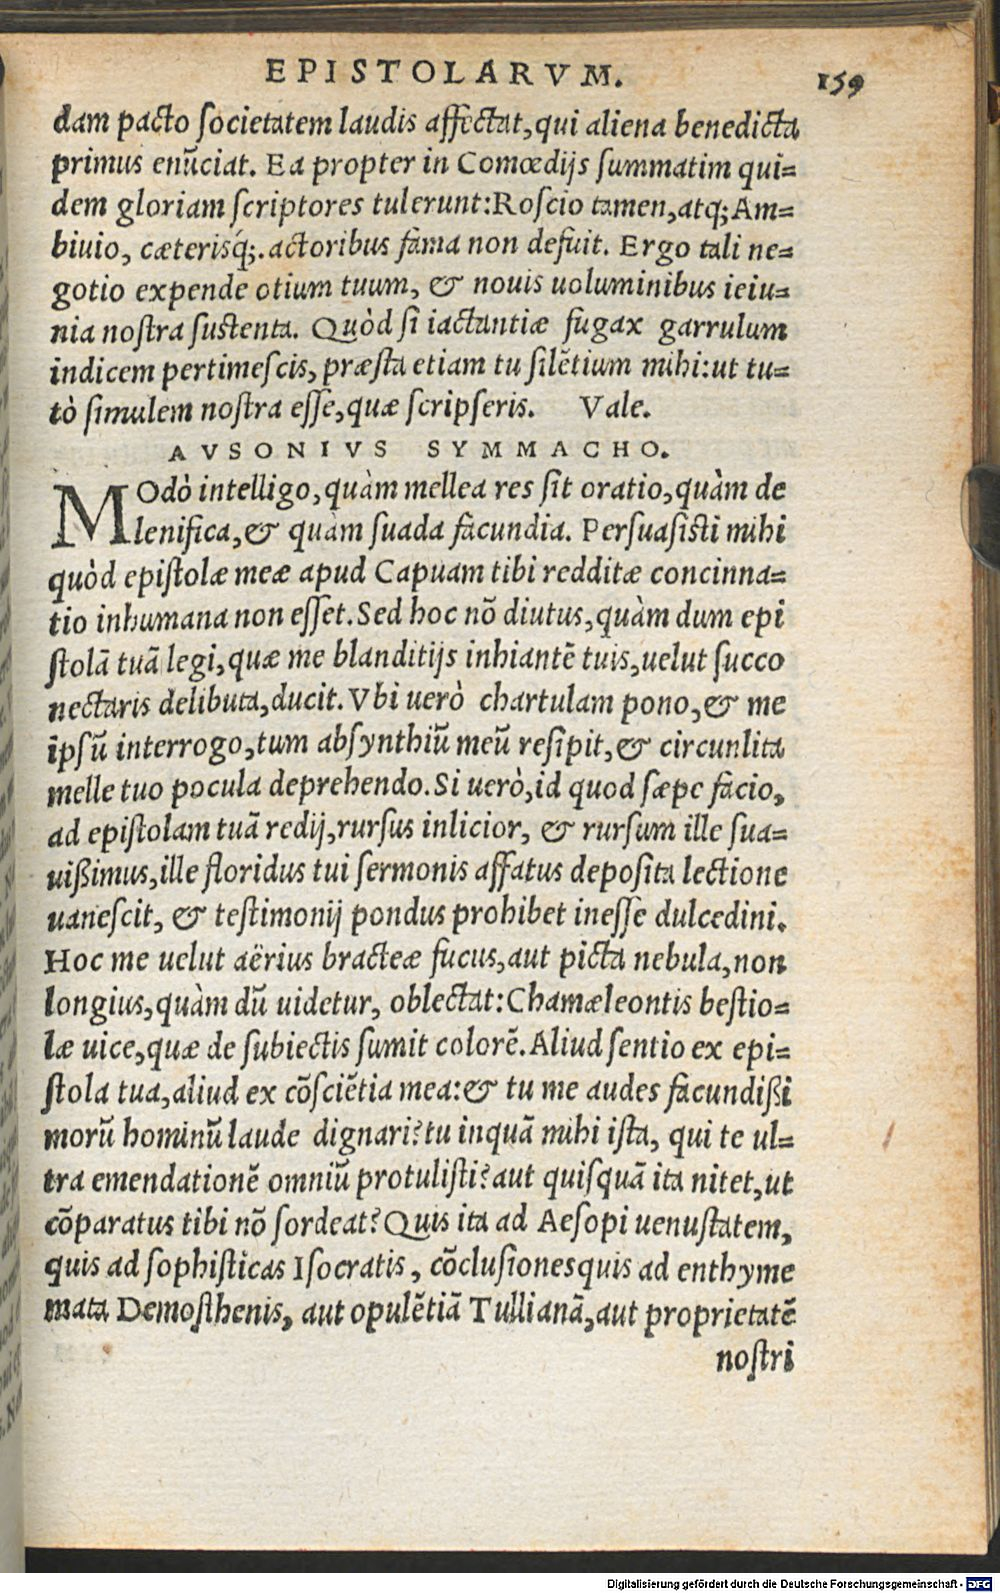 EPISTOLARVM. 159
dam pacto societatem laudis affectat, qui aliena benedicta
primus enũciat. Ea propter in Comœdijs summatim qui=
dem gloriam scriptores tulerunt: Roscio tamen, atq; Am=
biuio, cæterisq́;. actoribus fama non defuit. Ergo tali ne=
gotio expende otium tuum, & nouis uoluminibus ieiu=
nia nostra sustenta. Quòd si iactantiæ fugax garrulum
indicem pertimescis, præsta etiam tu silẽtium mihi: ut tu=
tò simulem nostra esse, quæ scripseris. Vale.
AVSONIVS SYMMACHO.
MOdò intelligo, quàm mellea res sit oratio, quàm de
lenifica, & quam suada facundia. Persuasisti mihi
quòd epistolæ meæ apud Capuam tibi redditæ concinna=
tio inhumana non esset. Sed hoc nõ diutus, quàm dum epi
stolã tuã legi, quæ me blanditijs inhiantẽ tuis, uelut succo
nectaris delibuta, ducit. Vbi uerò chartulam pono, & me
ipsũ interrogo, tum absynthiũ meũ resipit, & circunlita
melle tuo pocula deprehendo. Si uerò, id quod sæpe facio,
ad epistolam tuã redij, rursus inlicior, & rursum ille sua=
uißimus, ille floridus tui sermonis affatus deposita lectione
uanescit, & testimonij pondus prohibet inesse dulcedini.
Hoc me uelut aërius bracteæ fucus, aut picta nebula, non
longius, quàm dũ uidetur, oblectat: Chamæleontis bestio=
læ uice, quæ de subiectis sumit colorẽ. Aliud sentio ex epi=
stola tua, aliud ex cõsciẽtia mea: & tu me audes facundißi
morũ hominũ laude dignari? tu inquã mihi ista, qui te ul=
tra emendationẽ omniũ protulisti? aut quisquã ita nitet, ut
cõparatus tibi nõ sordeat? Quis ita ad Aesopi uenustatem,
quis ad sophisticas Isocratis, cõclusiones quis ad enthyme
mata Demosthenis, aut opulẽtiã Tullianã, aut proprietatẽ
nostri
Digitalisierung gefördert durch die Deutsche Forschungsgemeinschaft - DFG